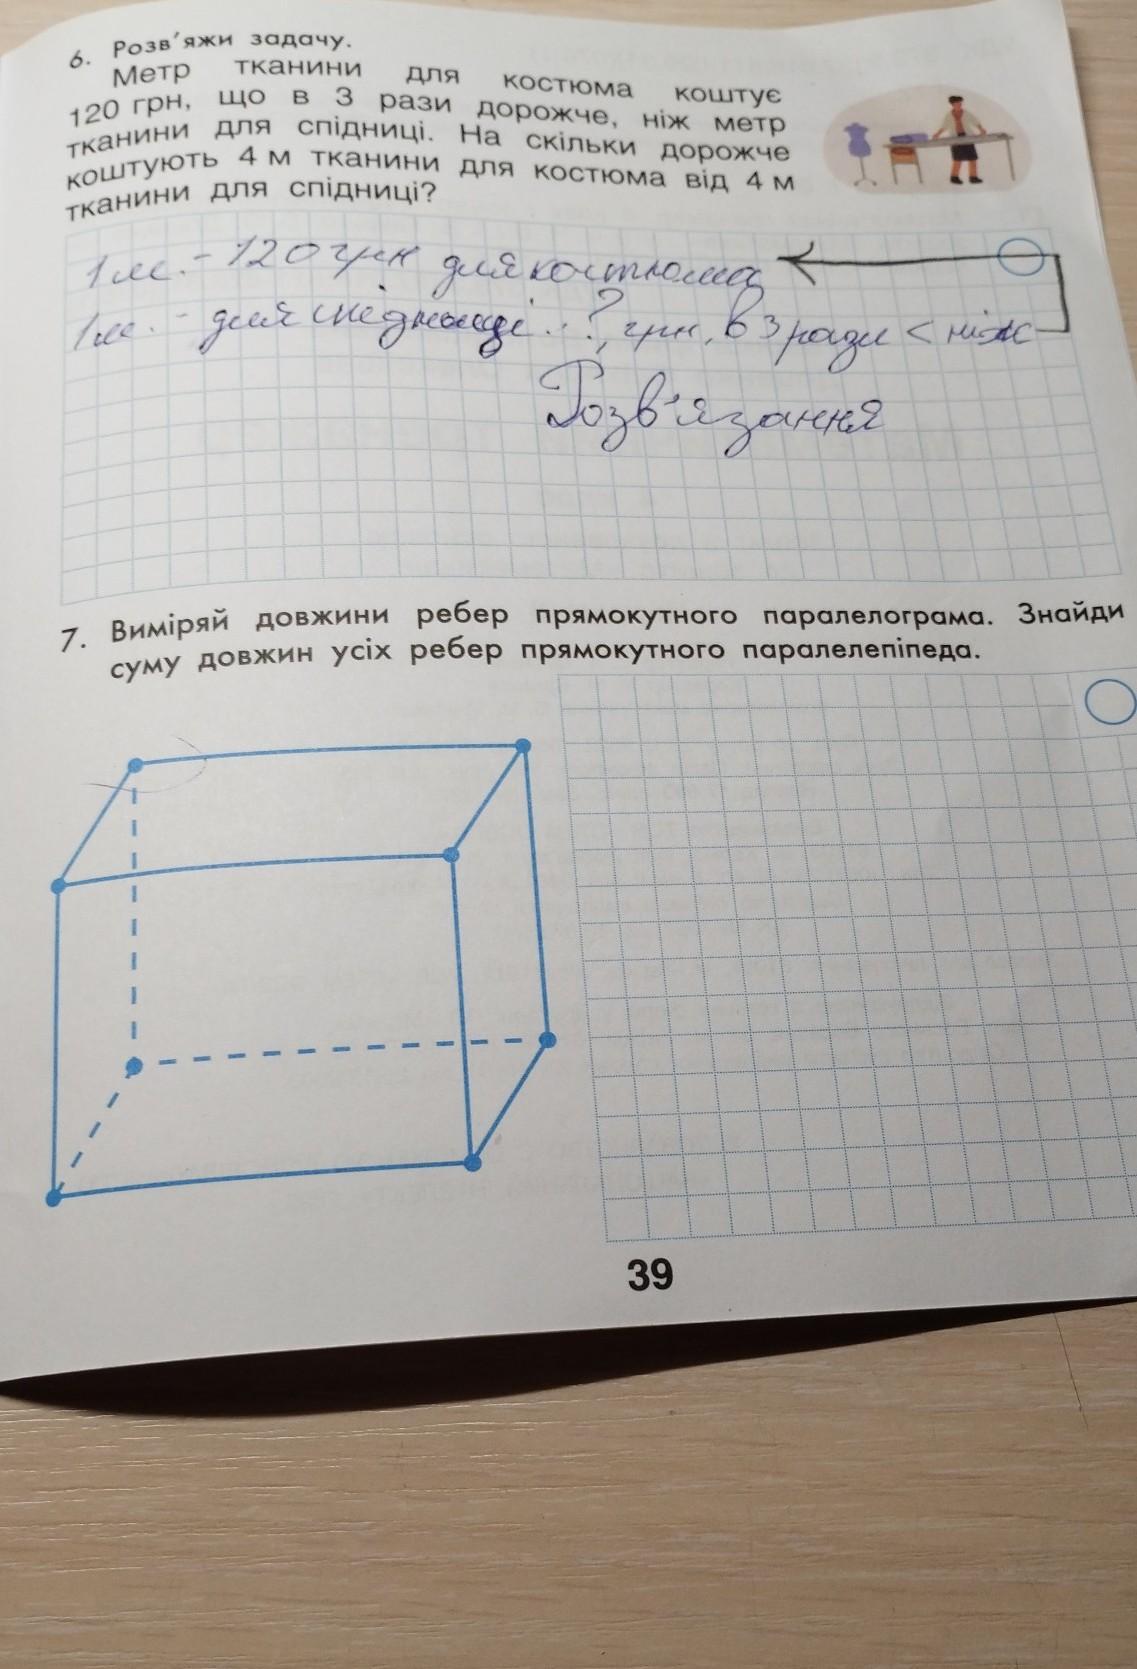 6. Розв'яжи задачу.
Метр тканини для костюма коштує
120 грн, що в 3 рази дорожче, ніж метр
тканини для спідниці. На скільки дорожче
коштують 4 м тканини для костюма від 4 м
тканини для спідниці?
1 м. - 120 грн для костюма
1 м. - для спідниці - ?, грн, в 3 рази < ніж
Розв'язання
7. Виміряй довжини ребер прямокутного паралелограма. Знайди
суму довжин усіх ребер прямокутного паралелепіпеда.
39